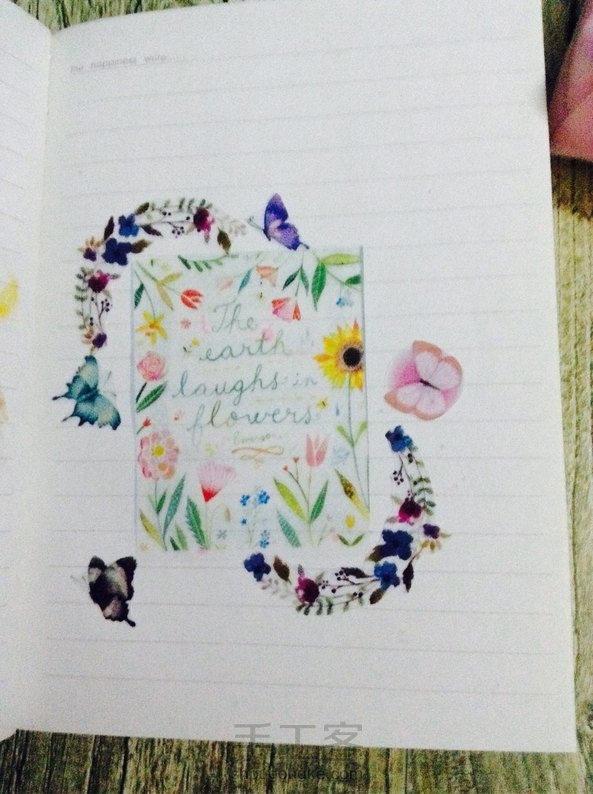 the happiness write
The
earth
laughs in
flowers
手工客